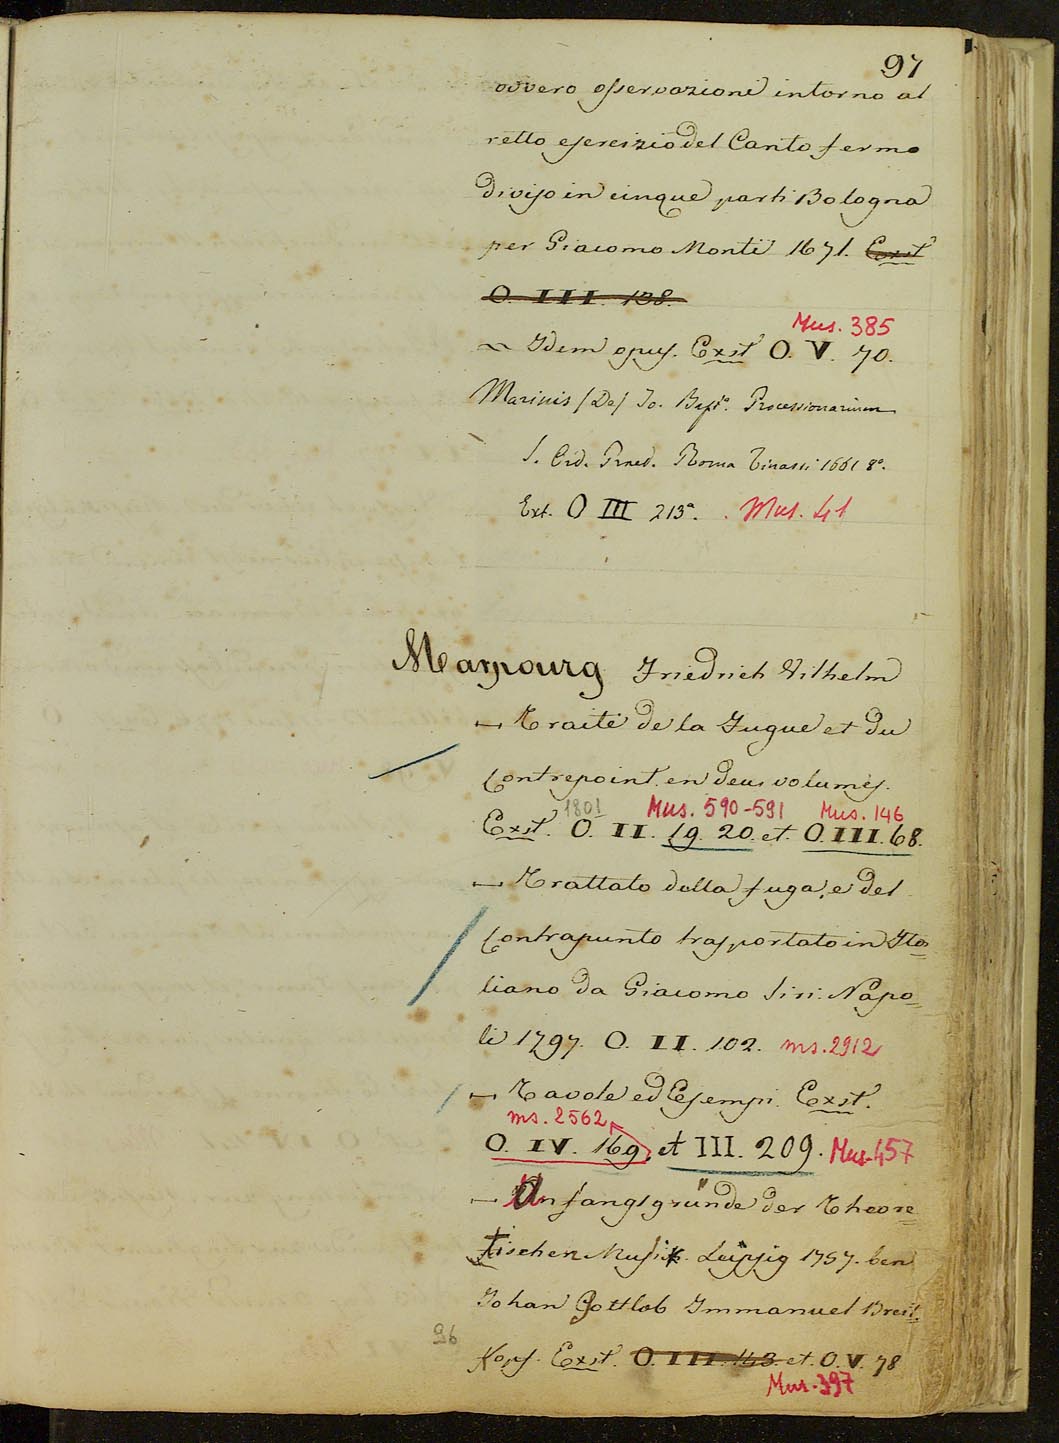 97
ovvero osservazioni intorno al
retto esercizio del Canto fermo
diviso in cinque parti Bologna
per Giacomo Monti 1671. Exst
O. III. 138.
Mus. 385
~ Idem opus. Exst O. V. 70.
Marinis (De) Jo. Bapt.ª Processionarium
S. Ord. Praed. Roma Tinassi 1661 8º.
Ext. O III 213ª. Mus. 41
Marpourg Friedrich Vilhelm
— Traité de la Fugue et du
Contrepoint en deus volumes.
1801 Mus. 590-591 Mus. 146
Exst. O. II. 19. 20. et. O. III. 68.
— Trattato della fuga, e del
Contrapunto trasportato in Ita=
liano da Giacomo Siri. Napo=
li 1797. O. II. 102. ms. 2912
— Tavole ed Esempi Exst.
ms. 2562
O. IV. 169, et III. 209. Mus. 457
— Anfangsgründe der Theore=
tischen Musik. Leipsig 1757. ben
Johan Gottlob Immanuel Breit=
96
Kopf. Exst. O. III. 143. et. O. V. 78
Mus. 397